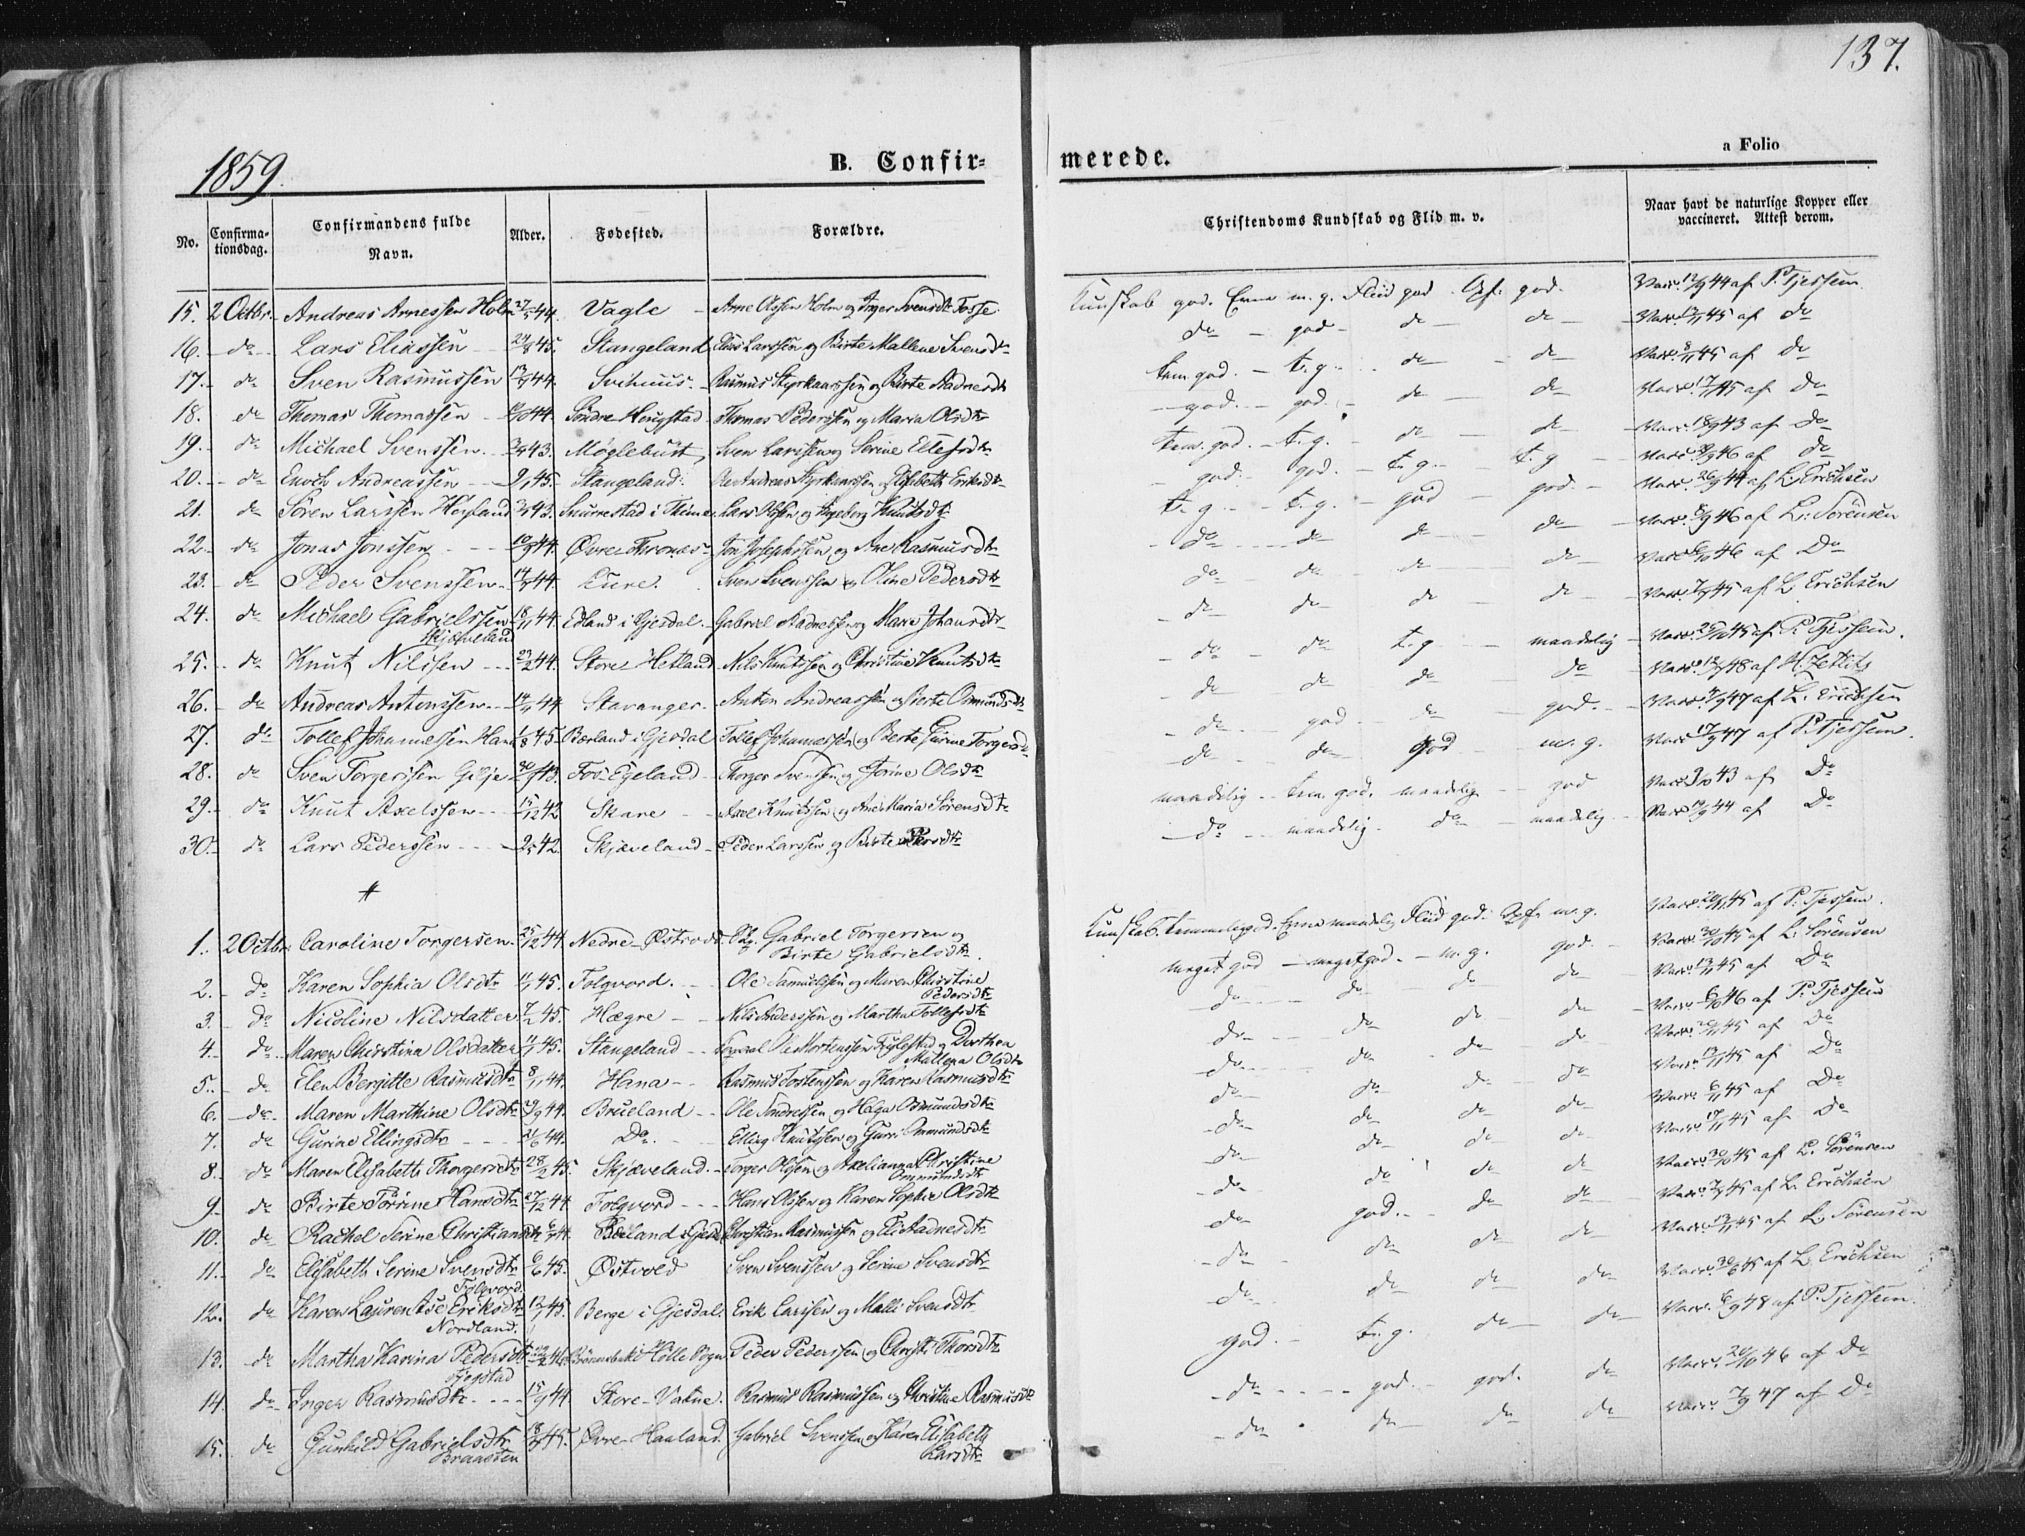 137.
1859. B. Confir- merede. a Folio
No. Confirma-tionsdag. Confirmandens fulde Navn. Alder. Fødested. Forældre. Christendoms Kundskab og Flid m. v. Naar havt de naturlige Kopper eller vaccineret. Attest derom.
15. 2 Octbr. Andreas Arnessen Holm 44. Vagle Arne Olssen Holm og Inger Svensdtr Fosse Kunskab god. Evne m. g. Fliid god. Opf. god. Vacc. 44 af P. Tjessem
16. do Lars Eliassen 45. Stangeland Elias Larssen og Birte Mallene Svensdtr do god do do Vacc. 45 af do
17. do Sven Rasmussen 44. Svihuus Rasmus Styrkaarssen og Birte Aadnesdtr tem. god. t. g. do do Vacc. 45 af do
18. do Thomas Thomassen 44. Søndre Hougstad Thomas Pederssen og Maria Olsdtr god. god. do do Vacc. 45 af Do
19. do Michael Svenssen 43. Møglebust Sven Larssen og Serine Ellefsdtr tem. god. t. g. do do Vacc. 43 af do
20. do Enoch Andreassen 45. Stangeland Andreas Styrkaarssen og Elisabeth Eriksdtr god. god. t. g. t. g. Vacc. 46 af do
21. do Søren Larssen Høyland 43. Snurrestad i Thime Lars Olssen og Ingeborg Knutsdtr t. g. t. g. god god. Vacc. 44 af L. Erichsen
22. do Jonas Jonssen 44. Øvre Tronæs Jon Josephssen og Ane Rasmusdtr do do do do Vacc. 46 af L. Sörensen
23. do Peder Svenssen 44. Lure Sven Svenssen og Oline Pedersdtr do do do do Vacc. 46 af Do
24. do Michael Gabrielssen Skjæveland 44. Edland i Gjesdal Gabriel Aadnessen og Maria Johansdtr do do do do Vacc. 45 af L. Erichsen
25. do Knut Nilssen 44. Store Hetland Nils Knutssen og Christine Knutsdtr do do t. g maadelig Vacc. 45 af P. Tjessem.
26. do Andreas Antonssen 44 Stavanger Anton Andreassen og Berte Osmundsdtr do do do do Vacc. 48 af H. Zetlitz
27. do Tollef Johannessen Hana 1/8 45. Bærland i Gjesdal Tollef Johannessen og Berte Gurine Torgersdtr do god do god. Vacc. 47 af L. Erichsen
28. do Sven Torgerssen Gilje 43. Fos-Egeland Thorger Svenssen og Jorine Olsdtr do do god m. g. Vacc. 47 af P. Tjessem.
29. do Knut Axelssen 42 Skare Axel Knutssen og Ane Maria Sørensdtr maadelig tem. god. maadelig god Vacc. 43 af Do
30. do Lars Pederssen 42. Skjæveland Peder Larssen og Birte Larsdtr do maadelig do maadelig Vacc. 44 af Do
1. 2 Octbr Caroline Torgersen 25/12 44. Nedre-Østraadt Gabriel Torgersen og Birte Gabrielsdtr. Kunskab. temmelig god. Evne maadelig Fliid god. Opf. m. g. Vacc. 45 af P. Tjessem.
2. do Karen Sophia Olsdtr 45. Folqvord. Ole Samuelssen og Maren Christine Pedersdtr meget god meget god. m. g. god. Vacc. 45 af L. Sörensen
3. Do Nicoline Nilsdatter 7/2 45. Hægre Nils Anderssen og Martha Tollefsdtr do do do do Vacc. 45 af Do
4. do Maren Christina Olsdatter 45. Stangeland Ole Mortenssen og Dorthea Mallena Olsdtr do do do do Vacc. 46 af P. Tjessem
5. do Elen Bergitte Rasmusdtr 8/11 44. Hana Rasmus Torstenssen og Karen Rasmusdtr do do do do Vacc. 45 af do
6. do Maren Marthine Olsdtr 29/9 44. Brueland Ole Andreassen og Helga Osmundsdtr do do do do Vacc. 45 af Do
7. do Gurine Ellingsdtr 44. Do. Elling Knutssen og Gurri Ommundsdtr do do do do Vacc. 45 af Do
8. do Maren Elisabeth Thorgersdtr 28/2 45. Skjæveland Torger Olssen og Axelianna Christine Ommundsdtr do do do do Vacc. 45 af Do
9. do Birte Tørrine Hansdtr 27/12 44. Folqvord Hans Olssen og Karen Sophie Olsdtr do do do do Vacc. 45 af L. Sörensen
10. do Rachel Serine Christiansdtr 44. Bærland i Gjesdal Christian Rasmussen og Eli Aadnesdtr do god. do do Vacc. 45 af L. Erichsen
11. do Elisabeth Serine Svensdtr Folqvord 6/6 45. Østvold Sven Svenssen og Serine Svensdtr do do do do Vacc. 45 af L. Sörensen
12. do Karen Lauren Ase Eriksdtr Nordland. 45. Berge i Gjesdal. Erik Larssen og Malli Svensdtr. do do do do Vacc. 45 af L. Erichsen
13. do Martha Karina Pedersdtr Fjogstad i Hölle Sogn Peder Pederssen og Christi Thorsdtr god. t. g. do do Vacc. 48 af P. Tjessem.
14. do Inger Rasmusdtr 15/9 44. Store-Vatne. Rasmus Rasmussen og Christine Rasmusdtr do god. god. do Vacc. 20/10 46 af Do
15. do Gunhild Gabrielsdtr Braasten 45. Øvre-Haaland. Gabriel Svenssen og Karen Elisabeth Larsdtr do do do do Vacc. 47 af Do